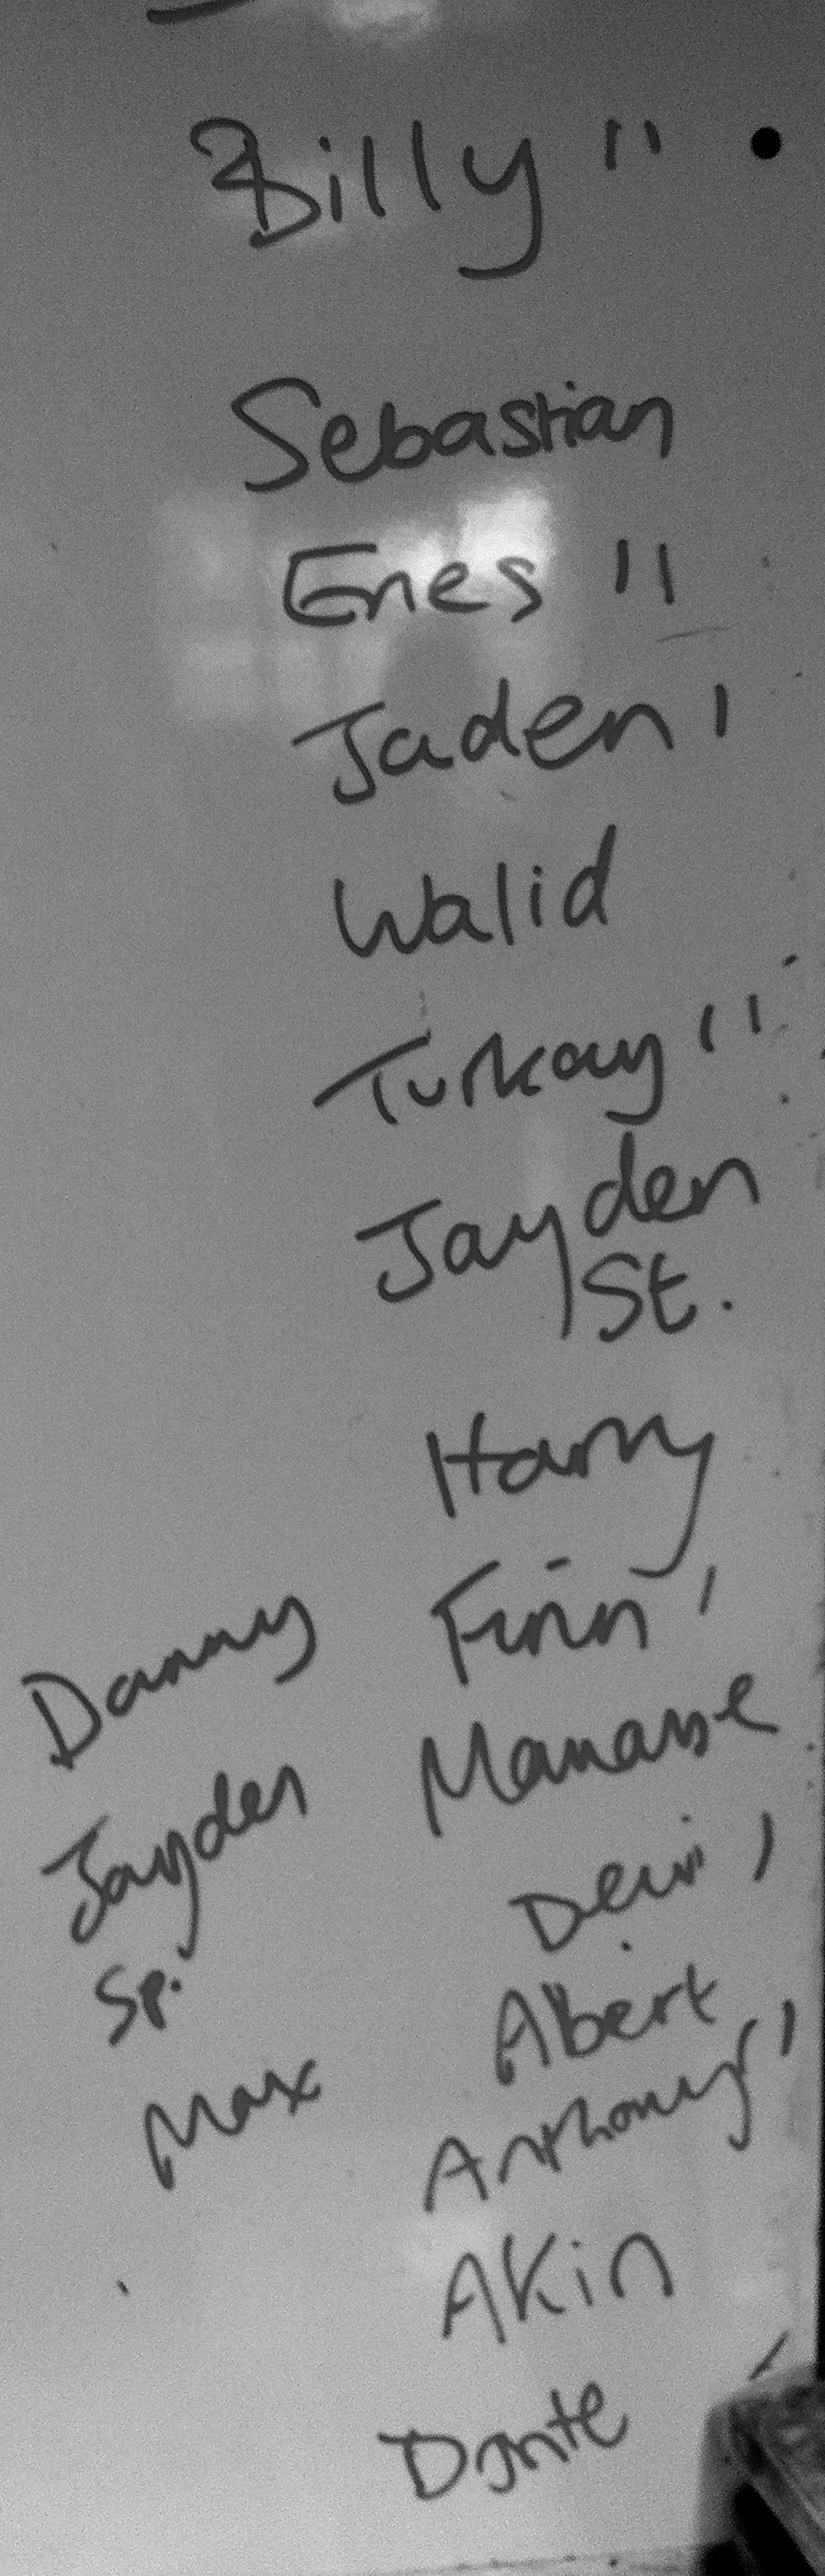 Billy 11
Sebastian
Enes 11
Jaden 1
Walid
Turkay 11
Jayden
St.
Harry
Finn 1
Manasse
Albert
Anthony 1
Akin
Dante 1
Danny
Jayden
Sp.
Max